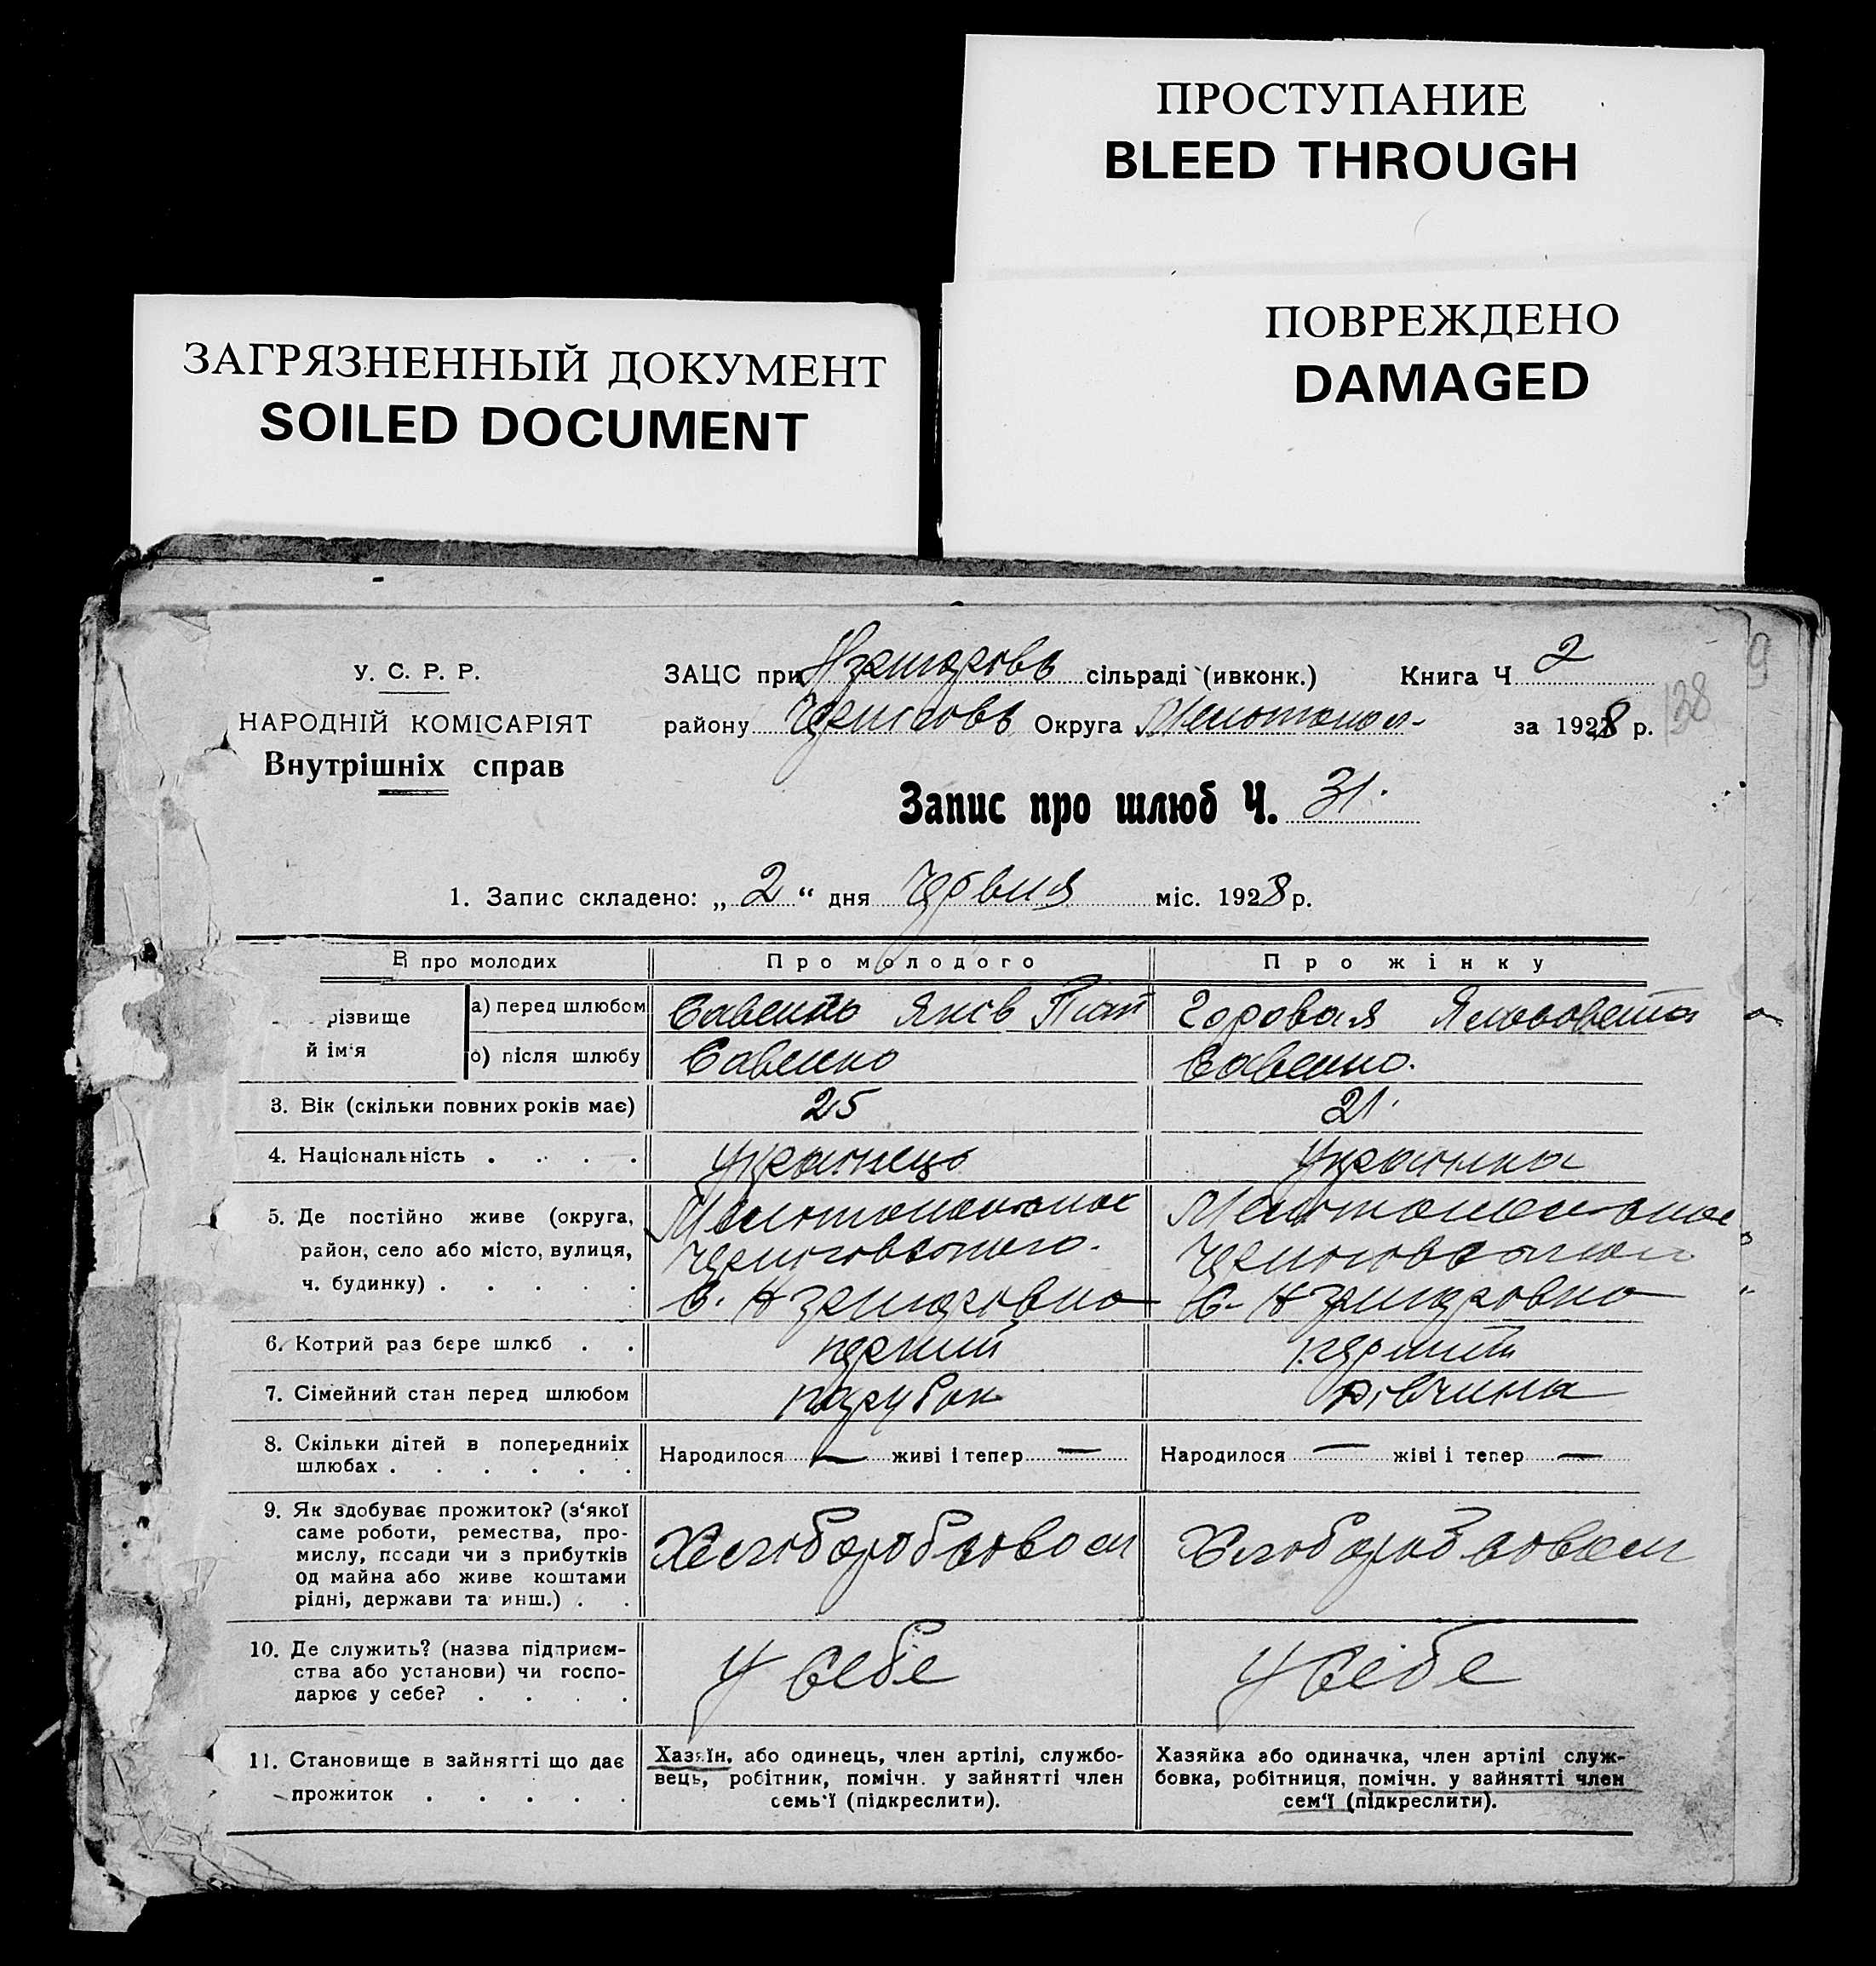 ПРОСТУПАНИЕ
BLEED THROUGH
ПОВРЕЖДЕНО
DAMAGED
ЗАГРЯЗНЕННЫЙ ДОКУМЕНТ
SOILED DOCUMENT
У. С. Р. Р.
НАРОДНІЙ КОМІСАРІЯТ
Внутрішніх справ
ЗАЦС при сільраді (ивконк.) Книга Ч 2
району Округа Мелітопол- за 1928 р.
9
138
Запис про шлюб Ч. 31.
1. Запис складено: „ 2 “ дня Червня міс. 1928 р.
про молодих
Про молодого
Про жінку
різвище
й ім‘я
а) перед шлюбом
Савенко Яків
Горовая
о) після шлюбу
Савенко
Савенко.
3. Вік (скільки повних років має)
25
21.
4. Національність . . . .
Українець
Українка
5. Де постійно живе (округа,
район, село або місто, вулиця,
ч. будинку) . . . . .
6. Котрий раз бере шлюб . .
перший
перший
7. Сімейний стан перед шлюбом
парубок
дівчина
8. Скільки дітей в попередниіх
шлюбах . . . . . .
Народилося — живі і тепер —
Народилося — жіві і тепер —
9. Як здобуває прожиток? (з‘якої
саме роботи, ремества, про-
мислу, посади чи з прибутків
од майна або живе коштами
рідні, держави та инш.) . .
10. Де служить? (назва підприєм-
ства або установи) чи госпо-
дарює у себе? . . . .
У себе
У себе
11. Становище в зайнятті що дає
прожиток . . . . .
Хазяїн, або одинець, член артілі, службо-
вець, робітник, помічн. у зайнятті член
семь‘ї (підкреслити).
Хазяйка або одиначка, член артілі служ-
бовка, робітниця, помічн. у зайнятті член
сем‘ї (підкреслити).